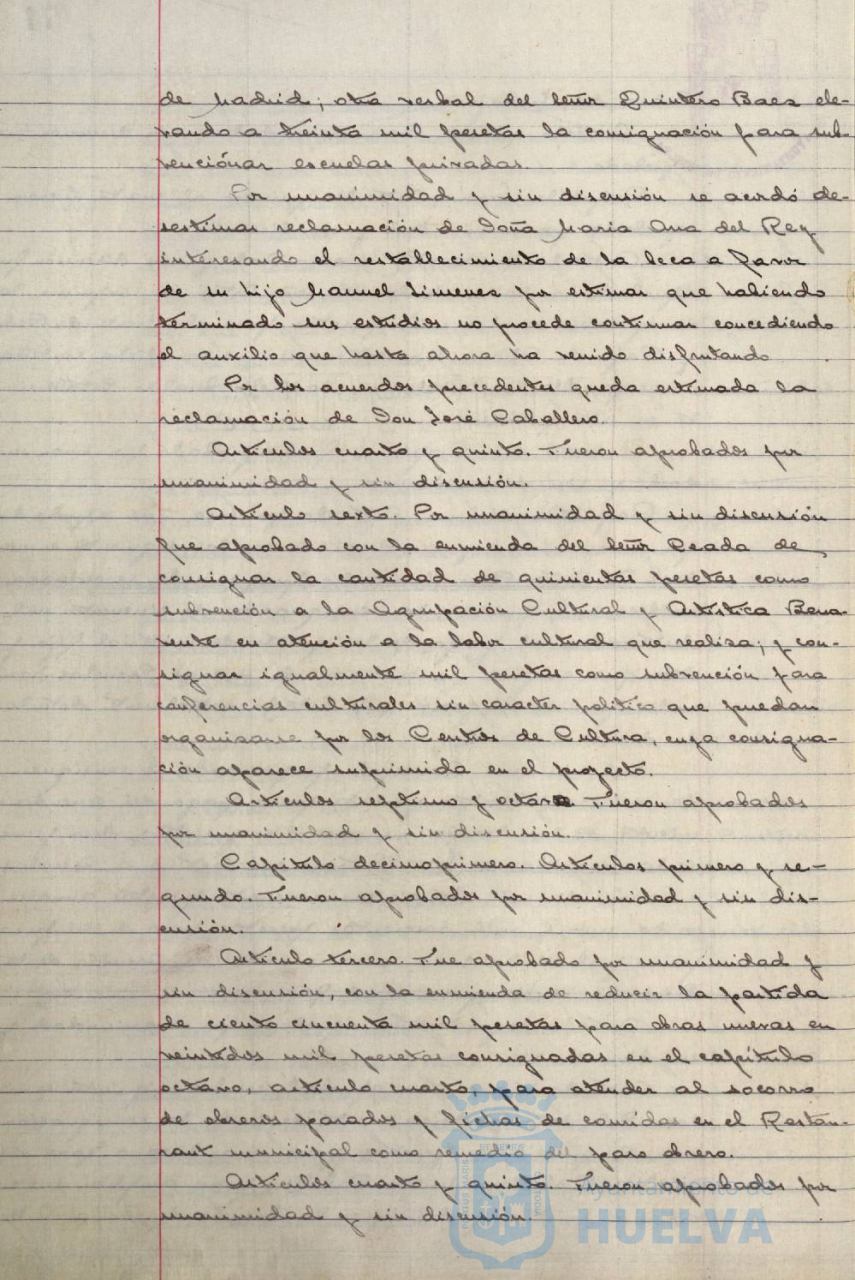 de Madrid; otra verbal del señor Quintero Baez ele-
vando a treinta mil pesetas la consignación para sub-
vencionar escuelas privadas.
Por unanimidad y sin discusión se acordó de-
sestimar reclamación de Doña Maria Ana del Rey
interesando el restablecimiento de la beca a favor
de su hijo Manuel Jimenez por estimar que habiendo
terminado sus estudios no procede continuar concediendo
el auxilio que hasta ahora ha venido disfrutando
Por los acuerdos precedentes queda estimada la
reclamación de Don José Caballero.
Artículos cuarto y quinto. Fueron aprobados por
unanimidad y sin discusión.
Artículo sexto. Por unanimidad y sin discusión
fue aprobado con la enmienda del señor de
consignar la cantidad de quinientas pesetas como
subvención a la Agrupación Cultural y Artística Bena-
vente en atención a la labor cultural que realiza; y con-
signar igualmente mil pesetas como subvención para
conferencias culturales sin caracter politico que puedan
organizarse por los Centros de Cultura, cuya consigna-
ción aparece suprimida en el proyecto.
Artículos septimo y octavo. Fueron aprobados
por unanimidad y sin discusión.
Capitulo decimoprimero. Artículos primero y se-
gundo. Fueron aprobados por unanimidad y sin dis-
cusión.
Artículo tercero. Fue aprobado por unanimidad y
sin discusión, con la enmienda de reducir la partida
de ciento cincuenta mil pesetas para obras nuevas en
veintidos mil pesetas consignadas en el capítulo
octavo, artículo cuarto, para atender al socorro
de obreros parados y fichas de comidas en el Restau-
rant municipal como remedio del paro obrero.
Artículos cuarto y quinto. Fueron aprobados por
unanimidad y sin discusión.
Ayuntamiento de
HUELVA